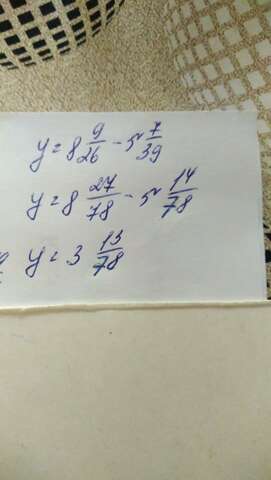 y = 8 9/26 - 5 7/39
y = 8 27/78 - 5 14/78
y = 3 13/78